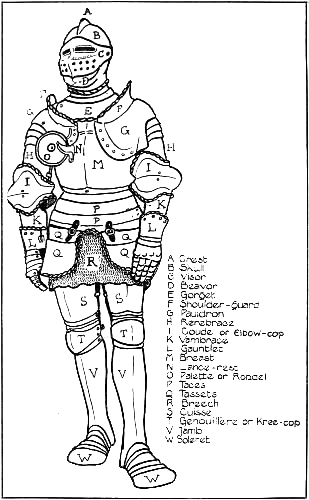 A
B
C
D
F
F
G
E
G
H
N
O
H
M
I
I
K
K
P
L
P
L
Q
Q
Q
Q
R
S
S
T
T
V
V
W
W
A Crest
B Skull
C Visor
D Beavor
E Gorget
F Shoulder-guard
G Pauldron
H Rerebrace
I Coude or Elbow-cop
K Vambrace
L Gauntlet
M Breast
N Lance-rest
O Palette or Rondel
P Taces
Q Tassets
R Breech
S Cuisse
T Genouillere or Knee-cop
V Jamb
W Soleret